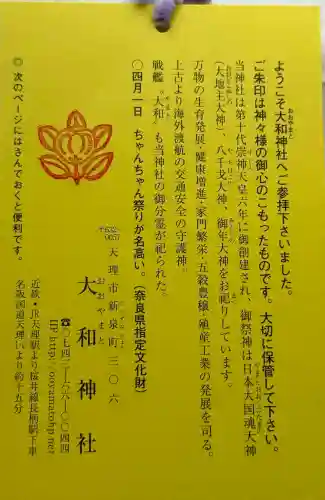 ようこそ大和神社へご参拝下さいました。
ご朱印は神々様の御心のこもったものです。大切に保管して下さい。
当神社は第十代崇神天皇六年に御創建され、御祭神は日本大国魂大神
（大地主大神）、八千戈大神、御年大神をお祀りしています。
万物の生育発展・健康増進・家門繁栄・五穀豊穣・殖産工業の発展を司る。
上古より海外渡航の交通安全の守護神。
戦艦〝大和〟も当神社の御分霊が祀られた。
〇四月一日 ちゃんちゃん祭りが名高い。（奈良県指定文化財）
天理市新泉町三〇六
大和神社
おおやまと
☎〇七四三―六六―〇〇四四
HP http: ooyamatohp.net
近鉄・JR天理駅より桜井線長柄駅下車
名阪国道天理いより約十五分
◎次のページにはさんでおくと便利です。